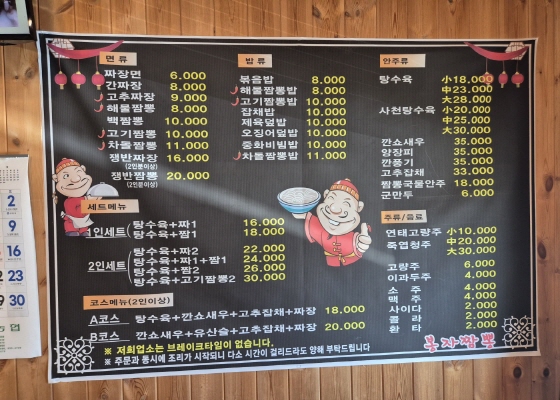 면 류
짜장면 6.000
간짜장 8.000
고추짜장 9.000
해물짬뽕 8.000
백짬뽕 10.000
고기짬뽕 10.000
차돌짬뽕 11.000
쟁반짜장 16.000
(2인분이상)
쟁반짬뽕 20.000
(2인분이상)
밥 류
볶음밥 8.000
해물짬뽕밥 8.000
고기짬뽕밥 10.000
잡채밥 10.000
제육덮밥 10.000
오징어덮밥 10.000
중화비빔밥 10.000
차돌짬뽕밥 11.000
안주류
탕수육 小18,000
中23,000
大28,000
사천탕수육 小20,000
中25,000
大30,000
깐쇼새우 35,000
양장피 35,000
깐풍기 35,000
고추잡채 33,000
짬뽕국물안주 18,000
군만두 6,000
세트메뉴
1인세트 탕수육+짜1 16.000
탕수육+짬1 18.000
2인세트 탕수육+짜2 22.000
탕수육+짜1+짬1 24.000
탕수육+짬2 26.000
탕수육+고기짬뽕2 30.000
주류/음료
연태고량주 小10,000
죽엽청주 中20,000
大30,000
고량주 6,000
이과두주 4,000
소 주 4,000
맥 주 4,000
사이다 2,000
콜 라 2,000
환 타 2,000
코스메뉴(2인이상)
A코스 탕수육+깐쇼새우+고추잡채+짜장 18,000
B코스 깐쇼새우+유산슬+고추잡채+짜장 20.000
※ 저희업소는 브레이크타임이 없습니다.
※ 주문과 동시에 조리가 시작되니 다소 시간이 걸리드라도 양해 부탁드립니다
봉자짬뽕
2
9
16
23
30